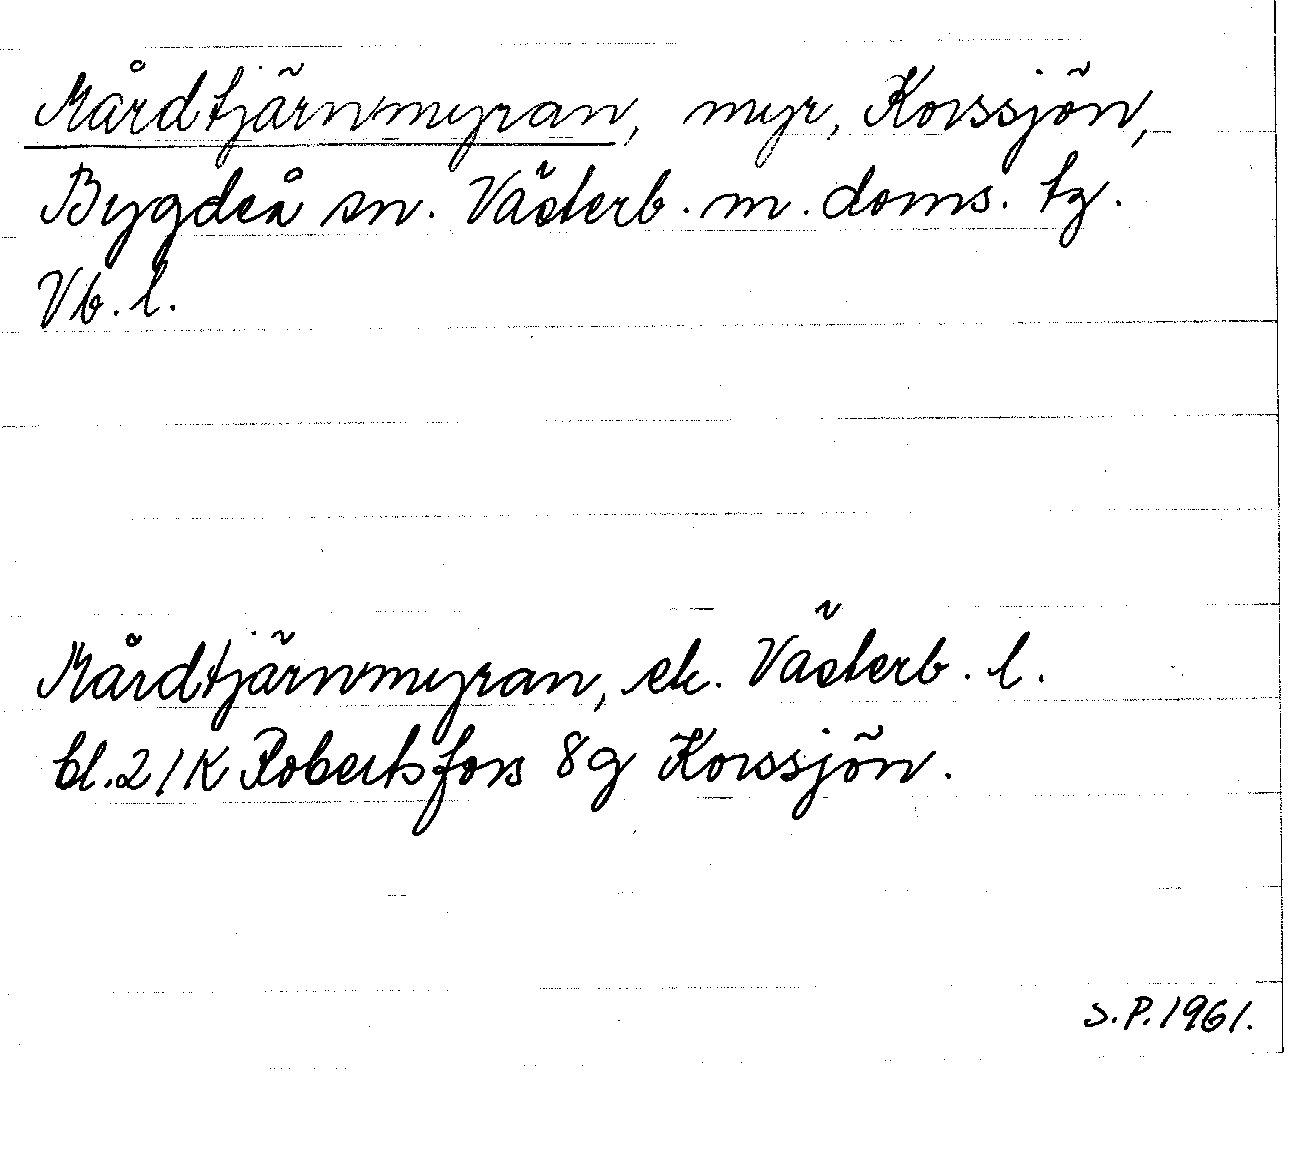 Mårdtjärnmyran, myr, Korssjön,
Bygdeå sn. Västerb. m. doms. tg.
Vb. l.
Mårdtjärnmyran, ek. Västerb. l.
bl. 21K Robertsfors 8g Korssjön.
S.P. 1961.